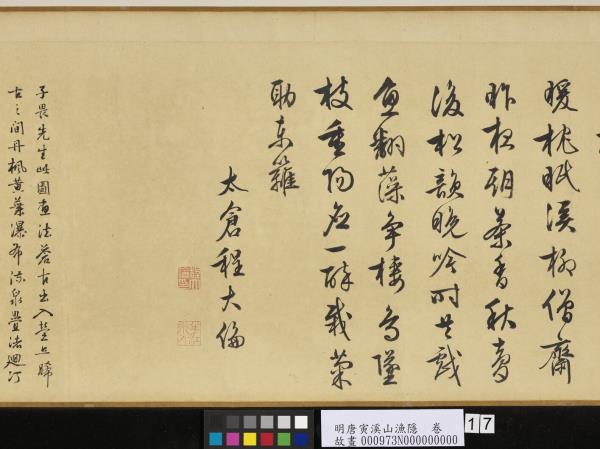 暖枕眠溪柳僧齋
昨夜期茶香秋夢
後松韻晚吟時共戲
魚翻藻爭棲鳥墜
枝重陽應一醉栽菊
助東籬
太倉程大倫
子畏先生此圖畫法蒼古出入營丘晞
古之間丹楓黃葉瀑布流泉疊渚迴汀
明唐寅溪山漁隱　卷
故畫000973N000000000
17